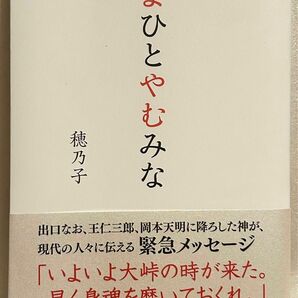 まひとやむみな
穂乃子
出口なお、王仁三郎、岡本天明に降ろした神が、
現代の人々に伝える 緊急メッセージ
「いよいよ大峠の時が来た。
早く身魂を磨いておくれ。」